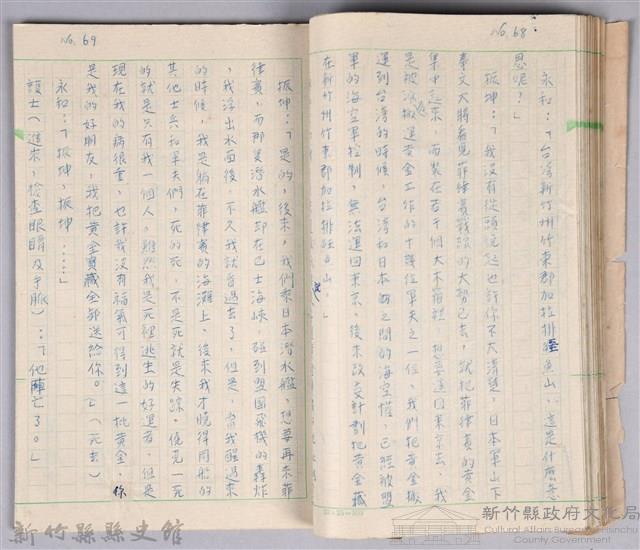 No. 68
永和：「台湾新竹州竹東郡加拉排鱷魚山，這是什麼意
思呢？」
振坤：「我没有從頭說起也許你不大清楚，日本軍山下
奉文大將看見菲律賓戰線的大勢已去，就把菲律賓的黃金
集中起來，而裝在若干個大木箱裡，想要運回東京去，我
是被派搬運黃金工作的十幾位軍夫之一位，我們把黃金搬
運到台湾的時候，台湾和日本内之間的海空權，已經被盟
軍的海空軍控制，無法運回東京，後來改变計劃把黃金藏
在新竹州竹東郡加拉排鱷魚山。」
No. 69
振坤：「是的，後來，我們乘日本潛水艦，想要再來菲
律賓，而那隻潛水艦却在巴士海峽，碰到盟國飛機的轟炸
，我浮出水面後，不久我就昏過去了，但是，當我醒過來
的時候，我是躺在菲律賓的海灘上，後來我才曉得同船的
其他士兵和軍夫們，死的死，不是死就是失踪，僥免一死
的就是只有我一個人，雖然我是死裡逃生的好運者，但是
現在我的病很重，也許我没有福氣可得到這一批黃金，你
是我的好朋友，我把黃金寶藏全部送給你。」（死去）
永和：「振坤，振坤……」
護士（進來，檢查眼睛及手脈）：「他陣亡了。」
新竹縣縣史館
新竹縣政府文化局
Cultural Affairs Bureau of Hsinchu
County Government